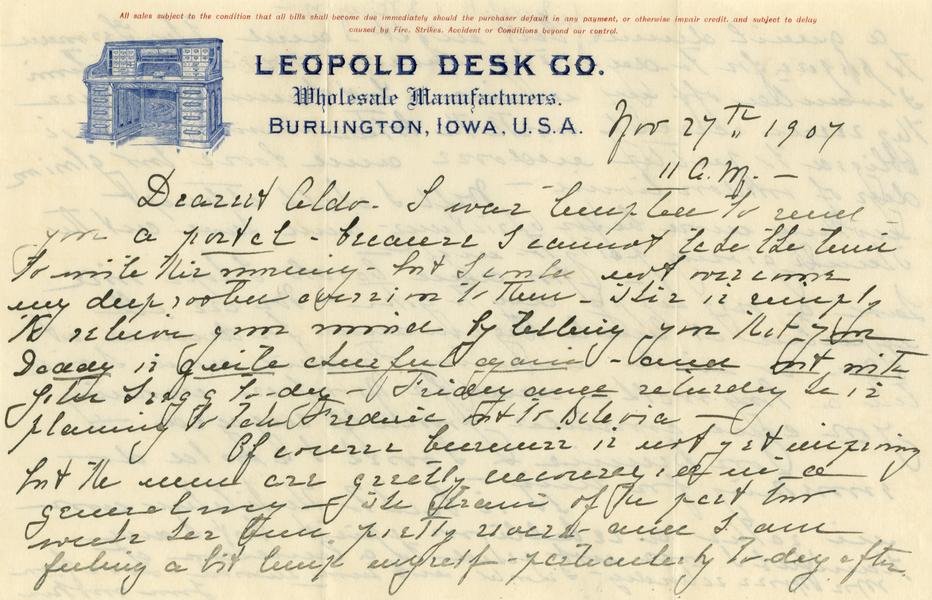 All sales subject to the condition that all bills shall become due immediately should the purchaser default in any payment, or otherwise impair credit, and subject to delay
caused by Fire, Strikes, Accident or Conditions beyond our control.
LEOPOLD DESK CO.
Wholesale Manufacturers.
BURLINGTON, IOWA, U.S.A.
Nov 27th 1907
11 A.M. —
Dearest Aldo - I was tempted to send
you a postal - because I cannot take the time
to write this morning - but I could not overcome
my deep rooted aversion to them - This is simply
to relieve your mind by telling you that your
Daddy is quite cheerful again - and out with
Gregg to-day - Friday and Saturday he is
planning to take Frederic out to
Of course business is not yet improving
but the men are greatly encouraged in a
general way - The strain of the past two
weeks has been pretty severe and I am
feeling a bit limp myself - particularly to-day after